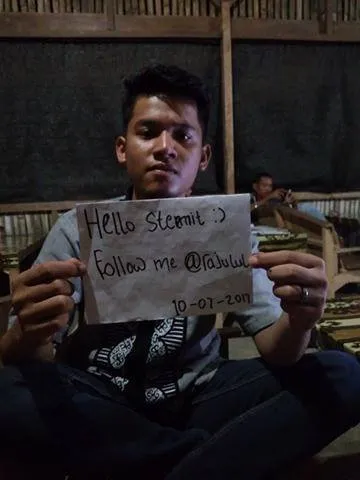 Hello Stemit :)
Follow me @rajulul
10-07-2017